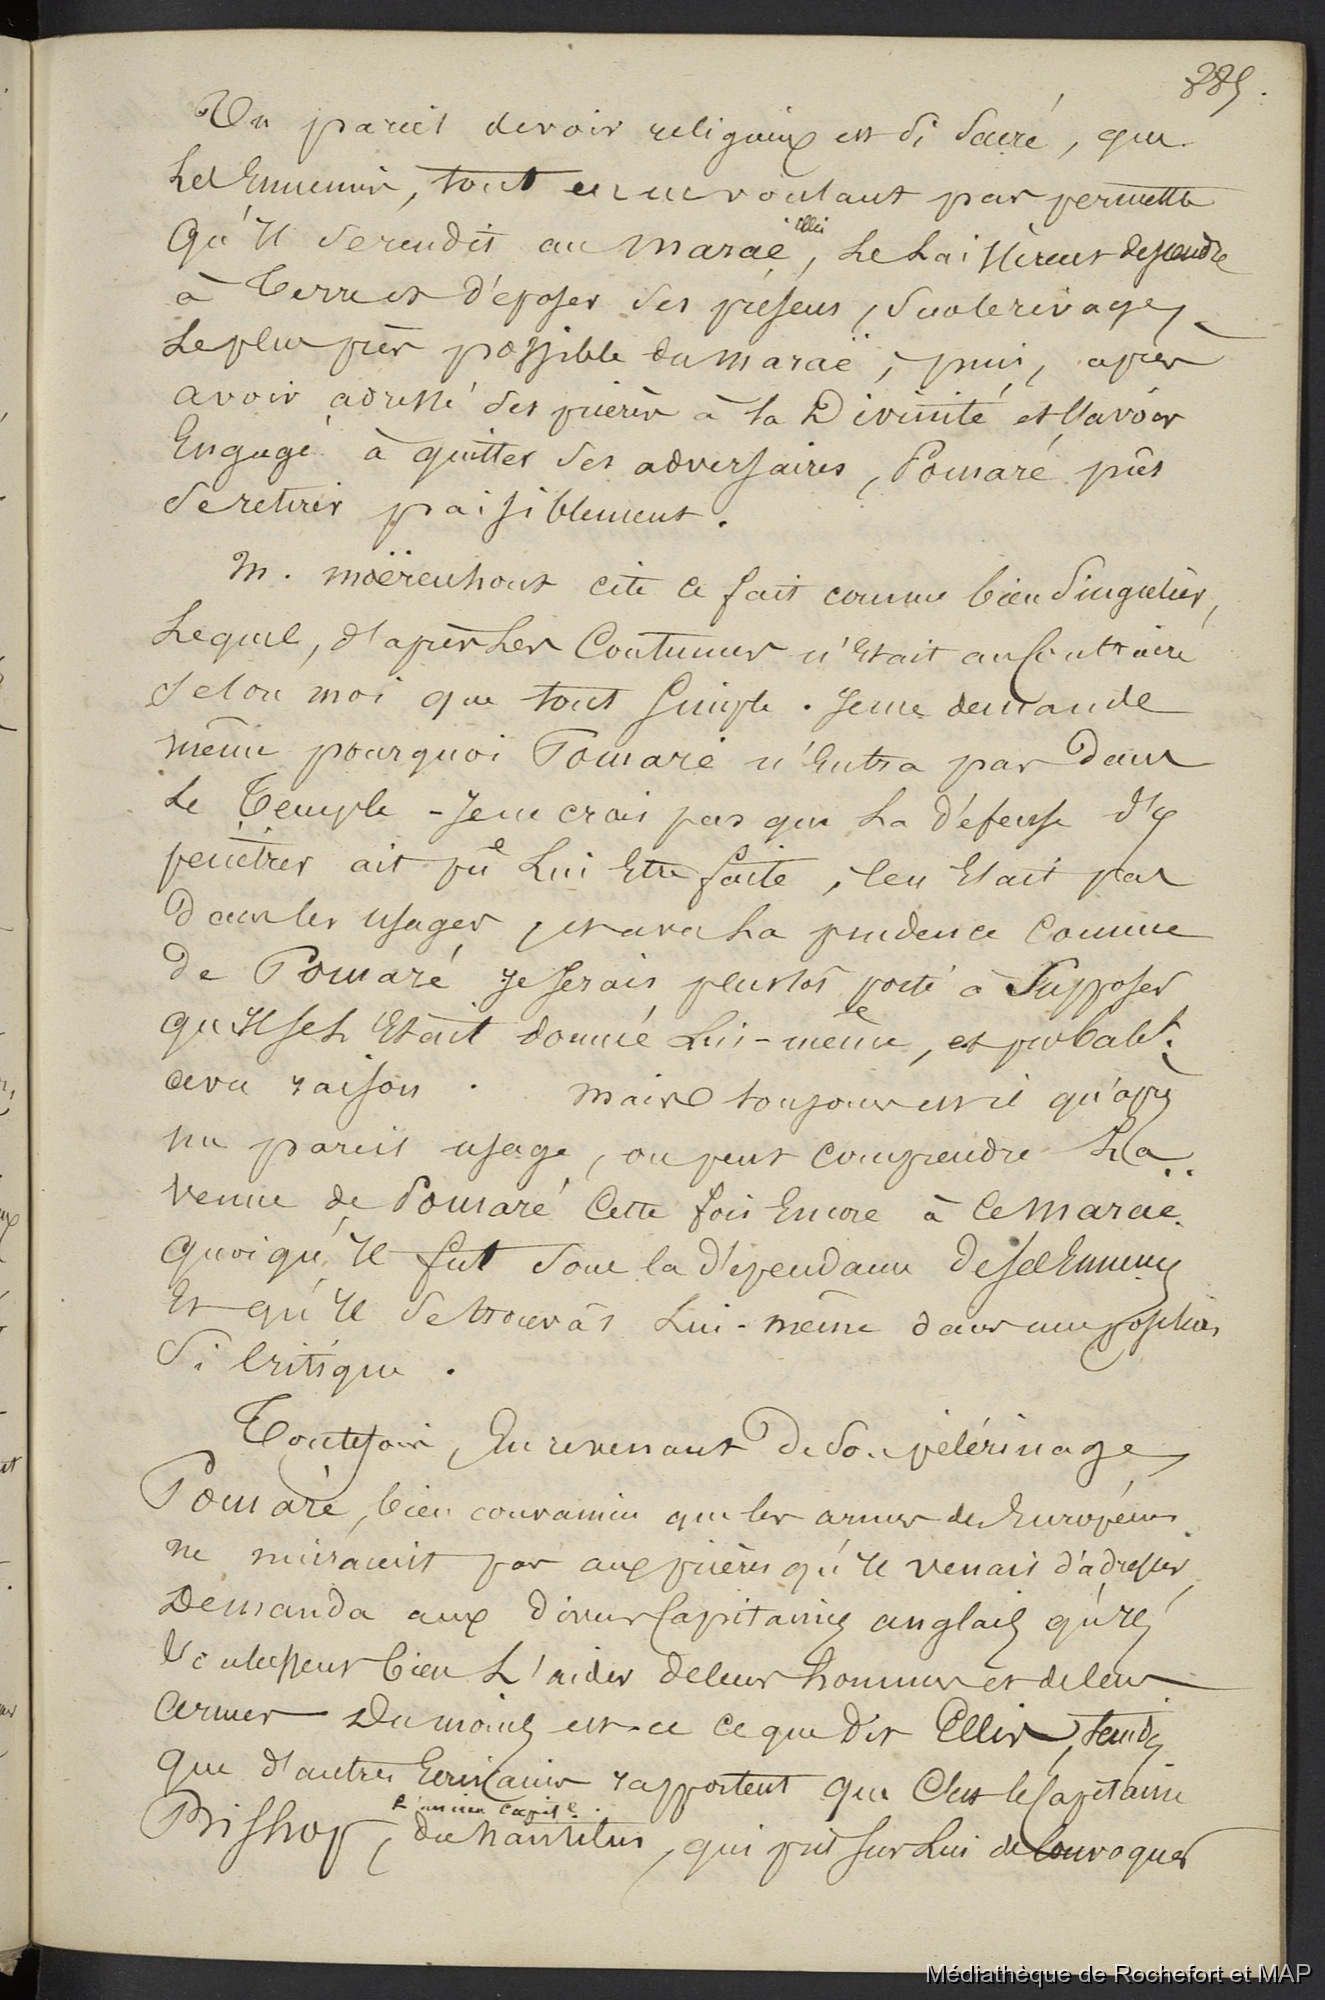 Un pareil devoir religieux est si sacré, que
les Ennemis, tout en ne voulant pas permettre
qu'Il se rendit au maraë, le laissèrent descendre
à Terre et d'époser ses présens, sur le rivage,
le plus près possible du maraë, puis, après
avoir adressé des prières à la Divinité et l'avoir
Engagé à quitter ses adversaires, Pomaré pût
se retirer paisiblement.
M. moërenhout cite ce fait comme bien singulier,
lequel, d'après les Coutumes n'Etait au Contraire
selon moi que tout simple. Je me demande
même pourquoi Pomaré n'Entra pas dans
le Temple - Je ne crois pas que la d'éfense d'y
penétrer ait pû lui Etre faite, ce n'Etait pas
dans les usages, et avec la prudence Connue
de Pomaré Je serais plustôt porté à Supposer
qu'Il se l'Etait donnée lui-même, et probablt.
avec raison. mais toujours est-il qu'après
un pareil usage, on peut comprendre la
venue de Pomaré Cette fois Encore à ce maraë
quoiqu'Il fut sous la d'épendance de ses Ennemis
Et qu'Il se trouvât lui-même dans une position
si Critique.
Toutefois, En revenant de son pélérinage,
Pomaré, bien convaincu que les armes des Européens
ne nuiraient pas aux prières qu'Il venait d'adresser,
Demanda aux divers Capitaines anglais qu'Ils
voulussent bien l'aider de leurs hommes et de leurs
armes - Du moins est-ce ce que dit Ellis, tandis
que d'autres Ecrivains rapportent que C'est le Capitaine
l'ancien Capite.
Bishop, du nautilus, qui prit sur lui de Convoquer